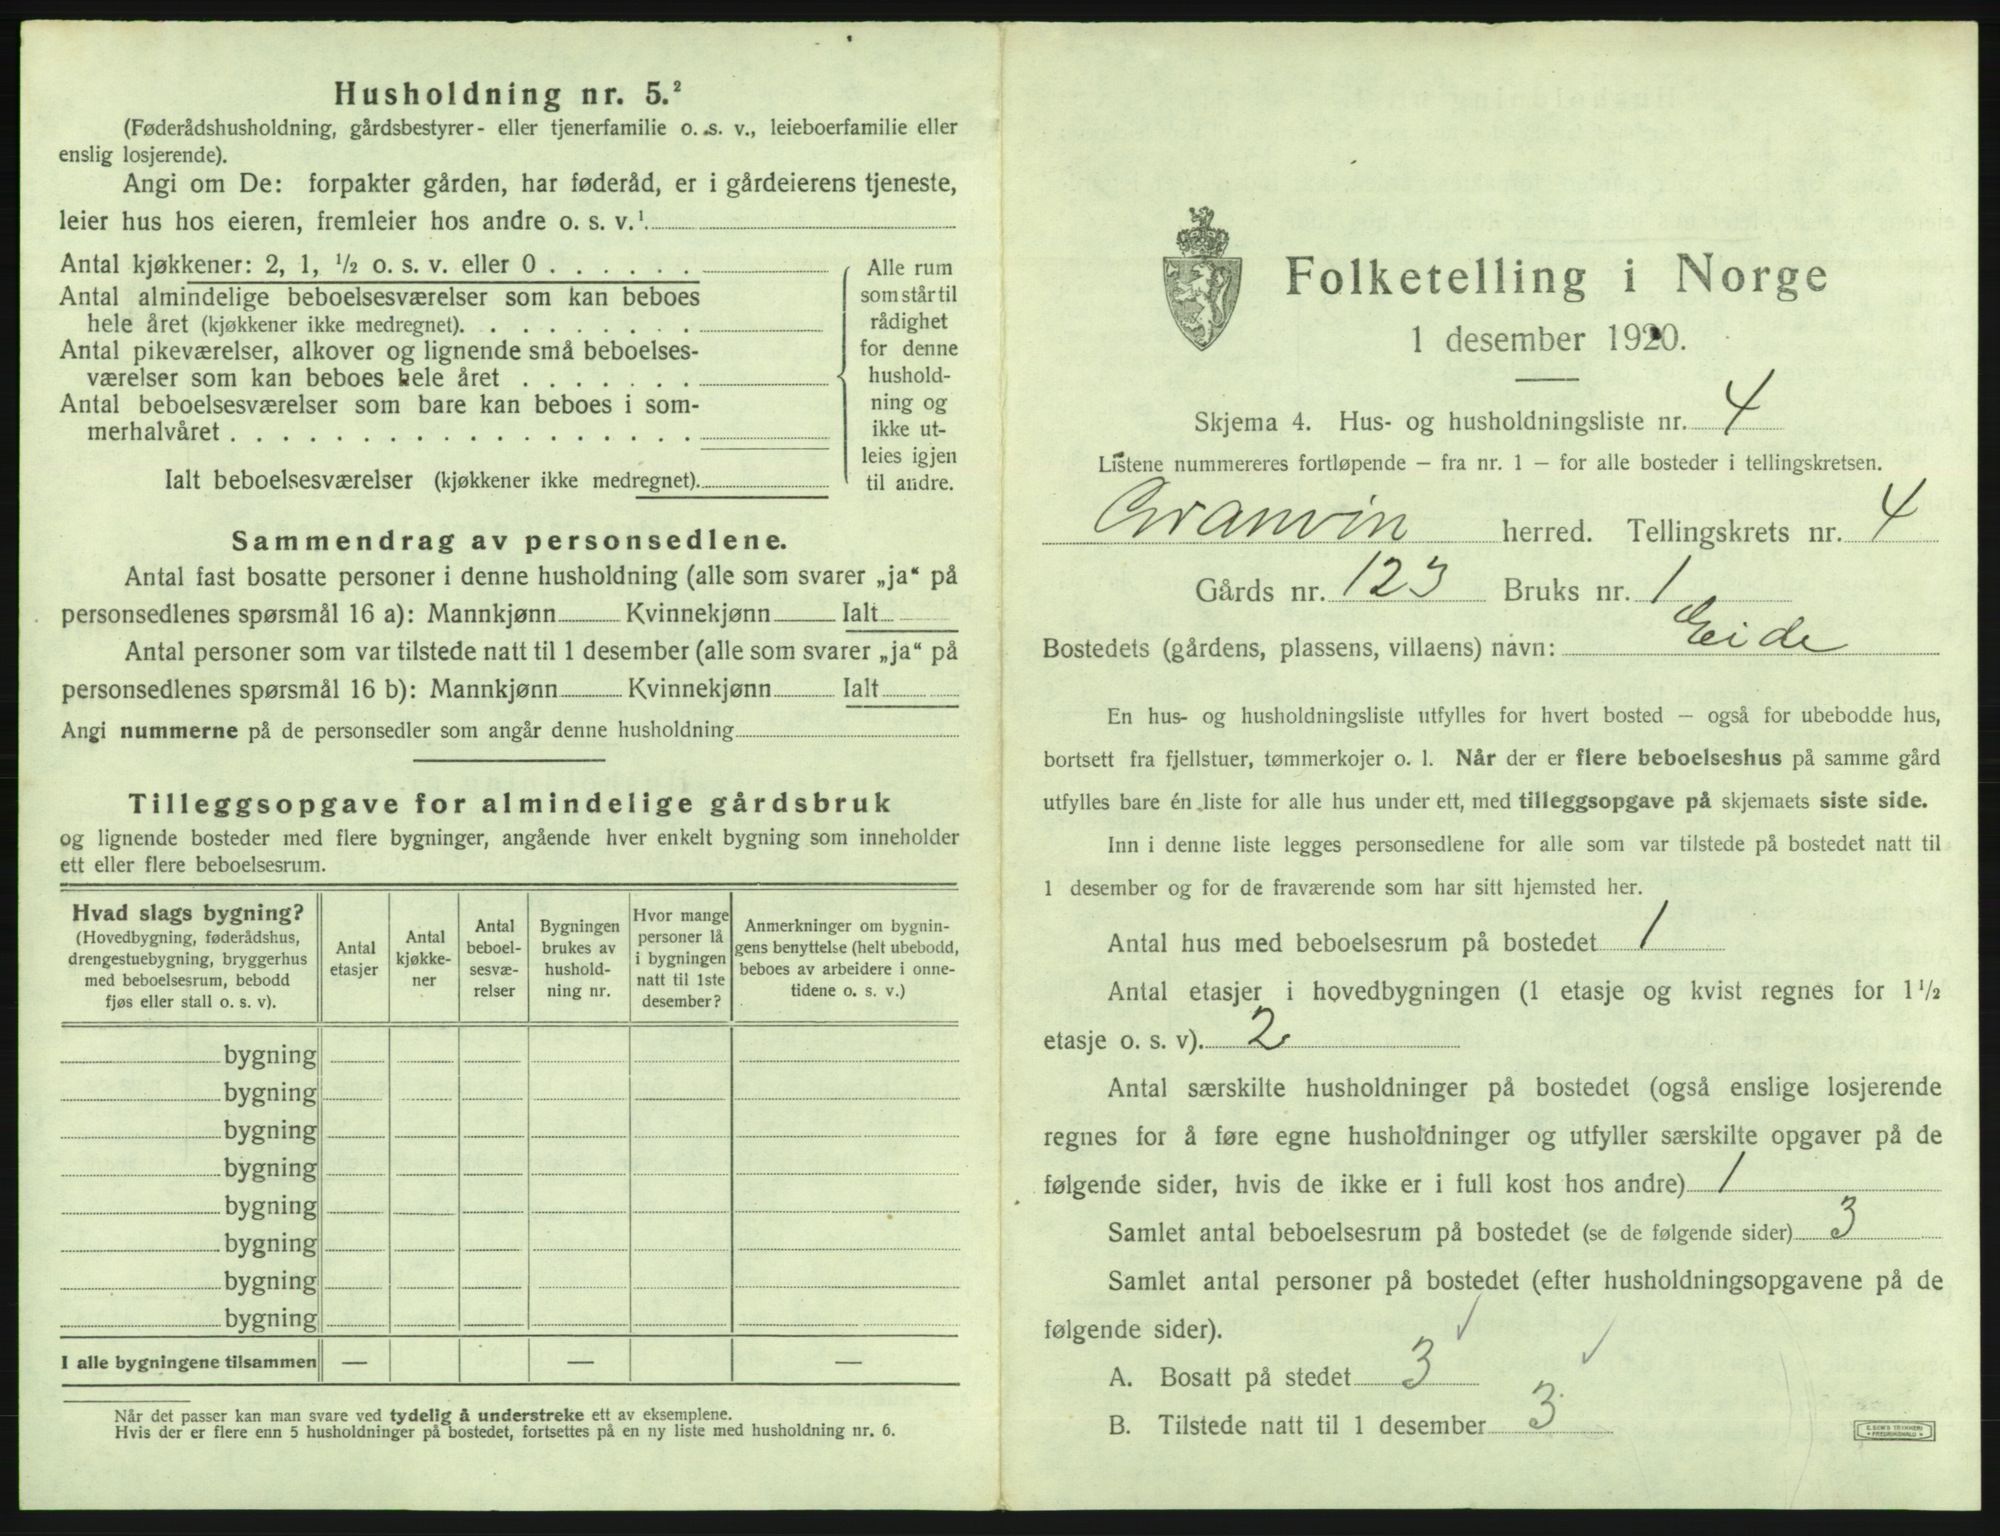 Husholdning nr. 5.²
(Føderådshusholdning, gårdsbestyrer- eller tjenerfamilie o. s. v., leieboerfamilie eller
enslig losjerende).
Angi om De: forpakter gården, har føderåd, er i gårdeierens tjeneste,
leier hus hos eieren, fremleier hos andre o. s. v.¹
Antal kjøkkener: 2, 1, ½ o. s. v. eller 0 . . . . . .
Antal almindelige beboelsesværelser som kan beboes
hele året (kjøkkener ikke medregnet). . . . . . . . .
Antal pikeværelser, alkover og lignende små beboelses-
værelser som kan beboes hele året . . . . . . .
Antal beboelsesværelser som bare kan beboes i som-
merhalvåret . . . . . . . . . . . . . . . . . .
Ialt beboelsesværelser (kjøkkener ikke medregnet).
Alle rum
som står til
rådighet
for denne
hushold-
ning og
ikke ut-
leies igjen
til andre.
Sammendrag av personsedlene.
Antal fast bosatte personer i denne husholdning (alle som svarer „ja“ på
personsedlenes spørsmål 16 a): Mannkjønn Kvinnekjønn Ialt
Antal personer som var tilstede natt til 1 desember (alle som svarer „ja“ på
personsedlenes spørsmål 16 b): Mannkjønn Kvinnekjønn Ialt
Angi nummerne på de personsedler som angår denne husholdning
Tilleggsopgave for almindelige gårdsbruk
og lignende bosteder med flere bygninger, angående hver enkelt bygning som inneholder
ett eller flere beboelsesrum.
Hvad slags bygning?
(Hovedbygning, føderådshus,
drengestuebygning, bryggerhus
med beboelsesrum, bebodd
fjøs eller stall o. s. v).
Antal
etasjer
Antal
kjøkke-
ner
Antal
beboel-
sesvæ-
relser
Bygningen
brukes av
hushold-
ning nr.
Hvor mange
personer lå
i bygningen
natt til 1ste
desember?
Anmerkninger om bygnin-
gens benyttelse (helt ubebodd,
beboes av arbeidere i onne-
tidene o. s. v.)
bygning
bygning
bygning
bygning
bygning
bygning
bygning
bygning
I alle bygningene tilsammen — — —
Når det passer kan man svare ved tydelig å understreke ett av eksemplene.
Hvis der er flere enn 5 husholdninger på bostedet, fortsettes på en ny liste med husholdning nr. 6.
Folketelling i Norge
1 desember 1920.
Skjema 4. Hus- og husholdningsliste nr. 4
Listene nummereres fortløpende – fra nr. 1 – for alle bosteder i tellingskretsen.
Granvin herred. Tellingskrets nr. 4
Gårds nr. 123 Bruks nr. 1
Bostedets (gårdens, plassens, villaens) navn: Eide
En hus- og husholdningsliste utfylles for hvert bosted – også for ubebodde hus,
bortsett fra fjellstuer, tømmerkojer o. l. Når der er flere beboelseshus på samme gård
utfylles bare én liste for alle hus under ett, med tilleggsopgave på skjemaets siste side.
Inn i denne liste legges personsedlene for alle som var tilstede på bostedet natt til
1 desember og for de fraværende som har sitt hjemsted her.
Antal hus med beboelsesrum på bostedet 1
Antal etasjer i hovedbygningen (1 etasje og kvist regnes for 1½
etasje o. s. v). 2
Antal særskilte husholdninger på bostedet (også enslige losjerende
regnes for å føre egne husholdninger og utfyller særskilte opgaver på de
følgende sider, hvis de ikke er i full kost hos andre) 1
Samlet antal beboelsesrum på bostedet (se de følgende sider) 3
Samlet antal personer på bostedet (efter husholdningsopgavene på de
følgende sider).
A. Bosatt på stedet 3
B. Tilstede natt til 1 desember 3